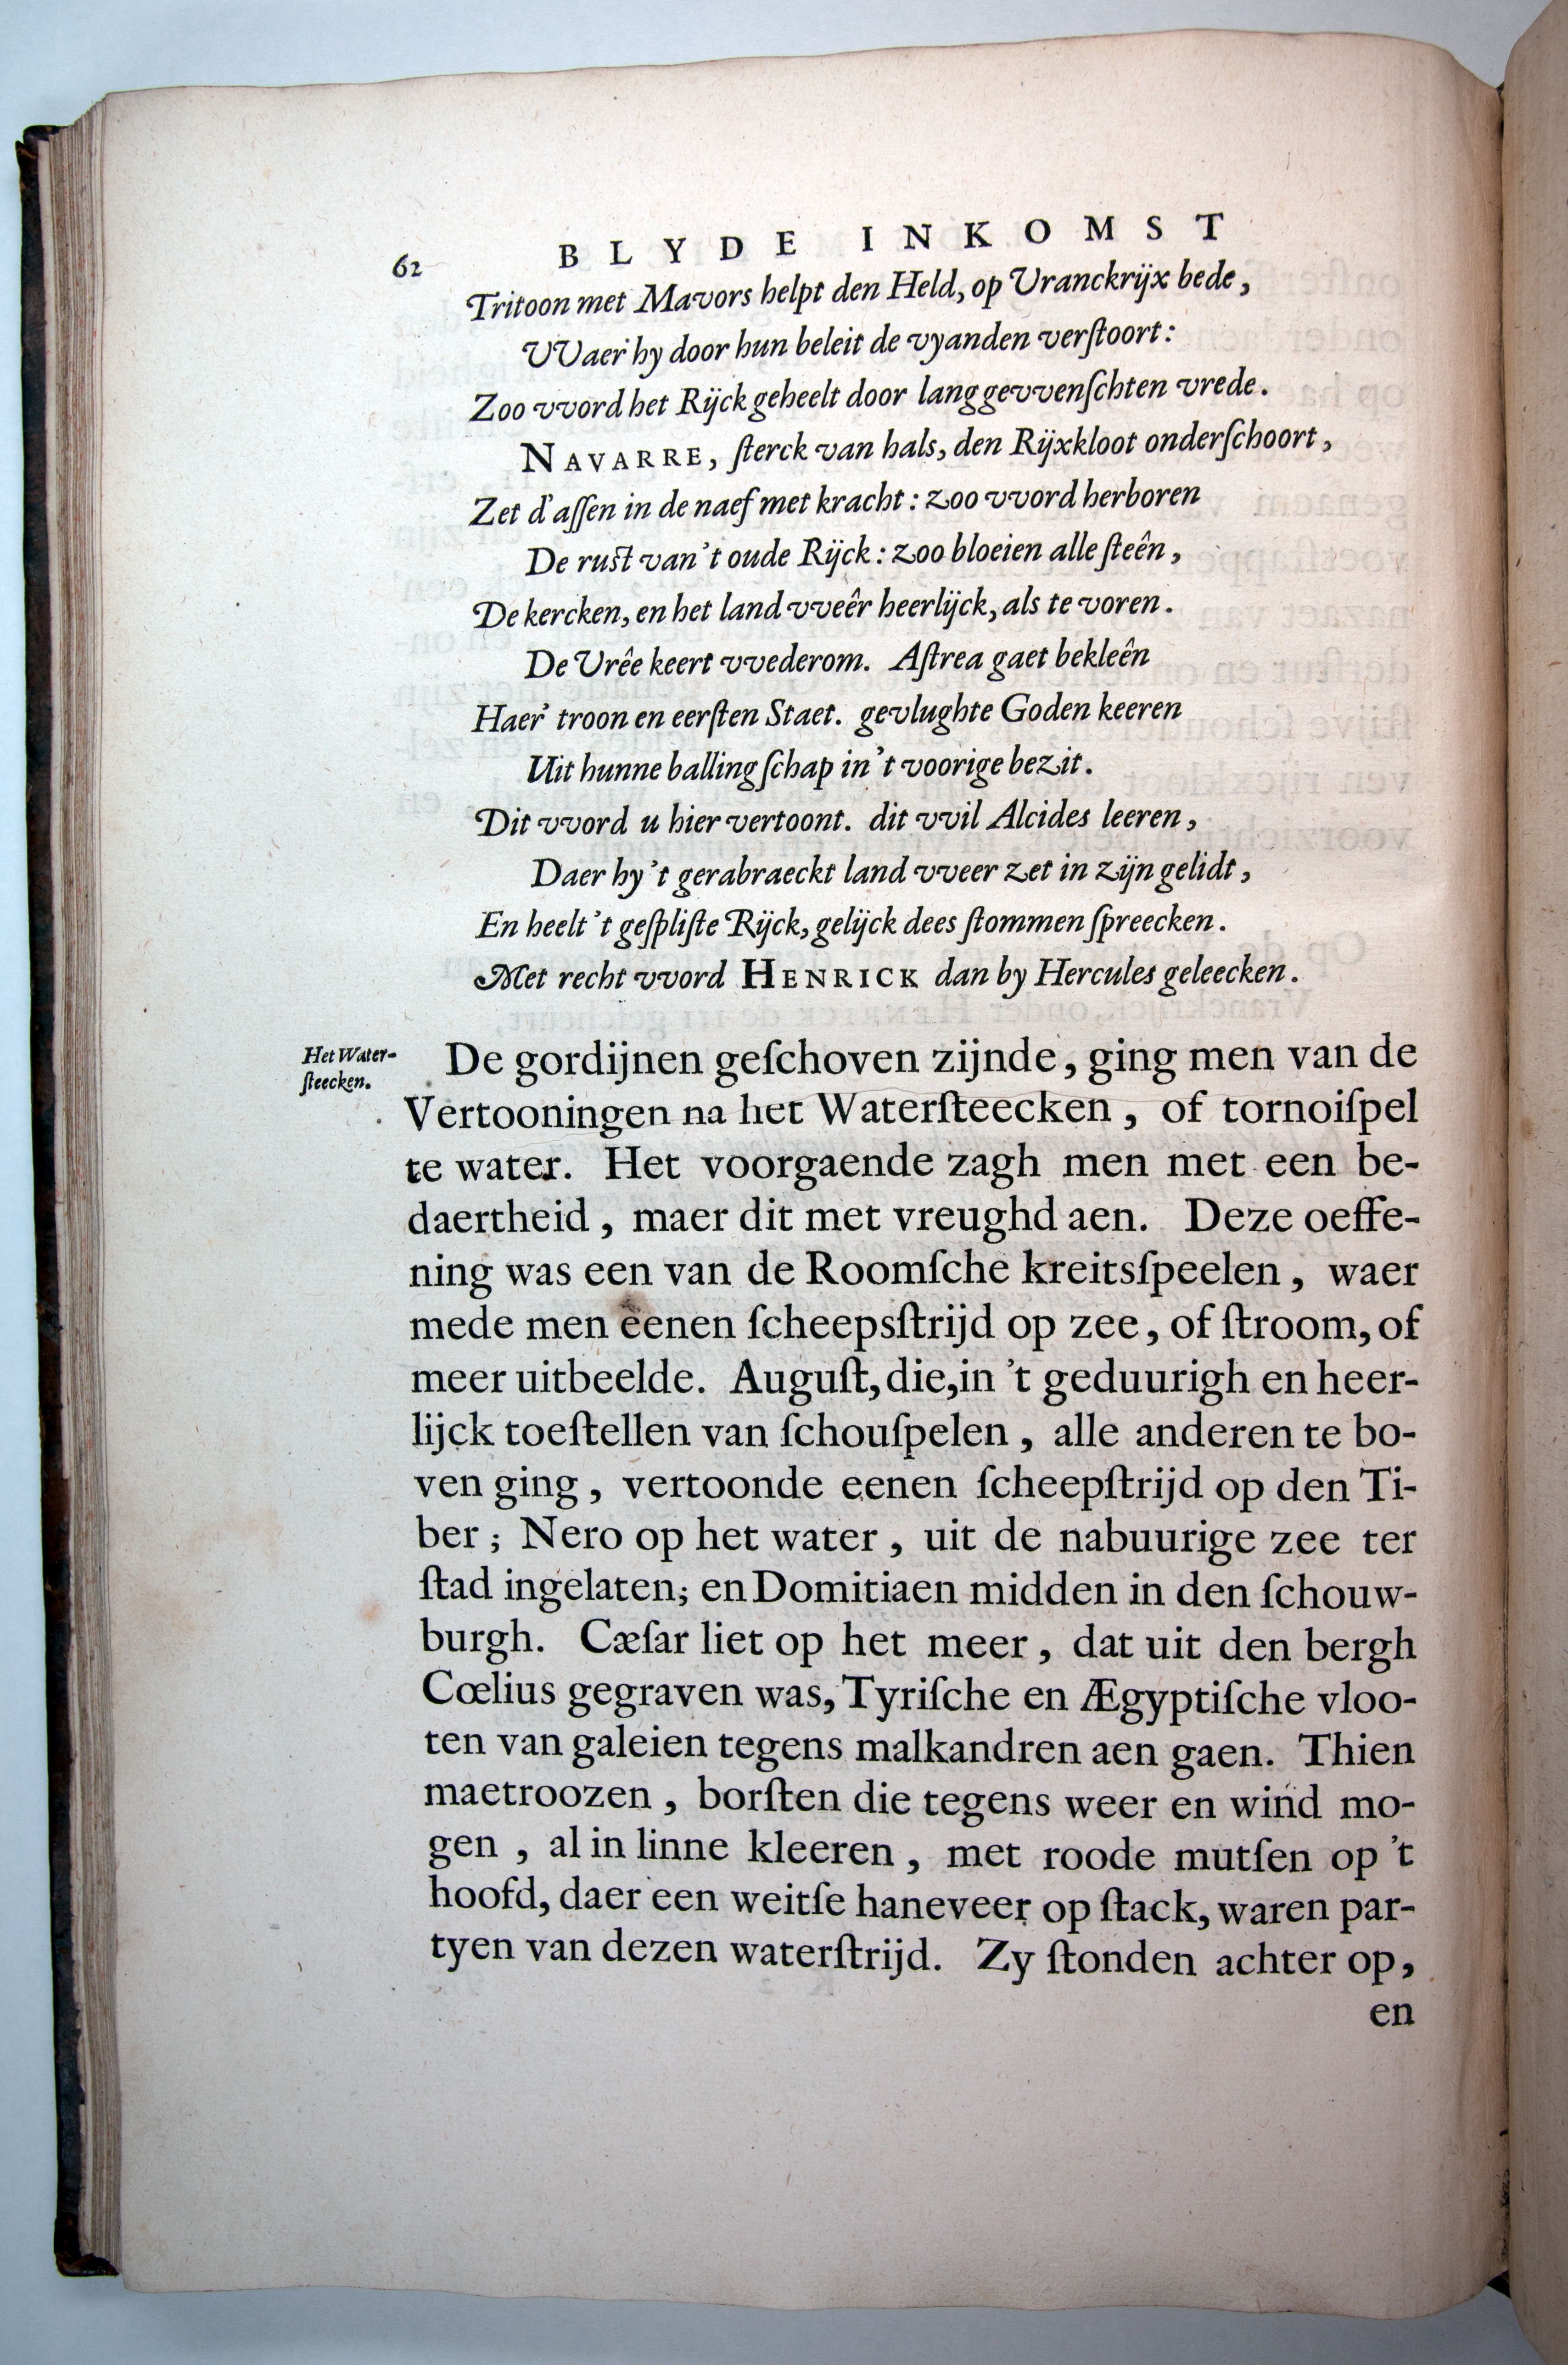 62 BLYDE INKOMST
Tritoon met Mavors helpt den Held, op Vranckrijx bede,
VVaer hy door hun beleit de vyanden verſtoort:
Zoo vvord het Rijck geheelt door lang gevvenſchten vrede.
NAVARRE, ſterck van hals, den Rijxkloot onderſchoort,
Zet d'aſſen in de naef met kracht: zoo vvord herboren
De rust van't oude Rijck: zoo bloeien alle ſteên,
De kercken, en het land vveêr heerlijck, als te voren.
De Vrêe keert vvederom. Aſtrea gaet bekleên
Haer' troon en eerſten Staet. gevlughte Goden keeren
Uit hunne balling ſchap in't voorige bezit.
Dit vvord u hier vertoont. dit vvil Alcides leeren,
Daer hy't gerabraeckt land vveer zet in zijn gelidt,
En heelt't geſpliſte Rijck, gelijck dees ſtommen ſpreecken.
Met recht vvord HENRICK dan by Hercules geleecken.
Het Water-
ſteecken.
De gordijnen geſchoven zijnde, ging men van de
Vertooningen na het Waterſteecken, of tornoiſpel
te water. Het voorgaende zagh men met een be-
daertheid, maer dit met vreughd aen. Deze oeffe-
ning was een van de Roomſche kreitsſpeelen, waer
mede men eenen ſcheepsſtrijd op zee, of ſtroom, of
meer uitbeelde. Auguſt, die, in 't geduurigh en heer-
lijck toeſtellen van ſchouſpelen, alle anderen te bo-
ven ging, vertoonde eenen ſcheepſtrijd op den Ti-
ber; Nero op het water, uit de nabuurige zee ter
ſtad ingelaten; en Domitiaen midden in den ſchouw-
burgh. Cæſar liet op het meer, dat uit den bergh
Cœlius gegraven was, Tyriſche en Ægyptiſche vloo-
ten van galeien tegens malkandren aen gaen. Thien
maetroozen, borſten die tegens weer en wind mo-
gen, al in linne kleeren, met roode mutſen op 't
hoofd, daer een weitſe haneveer op ſtack, waren par-
tyen van dezen waterſtrijd. Zy ſtonden achter op,
en